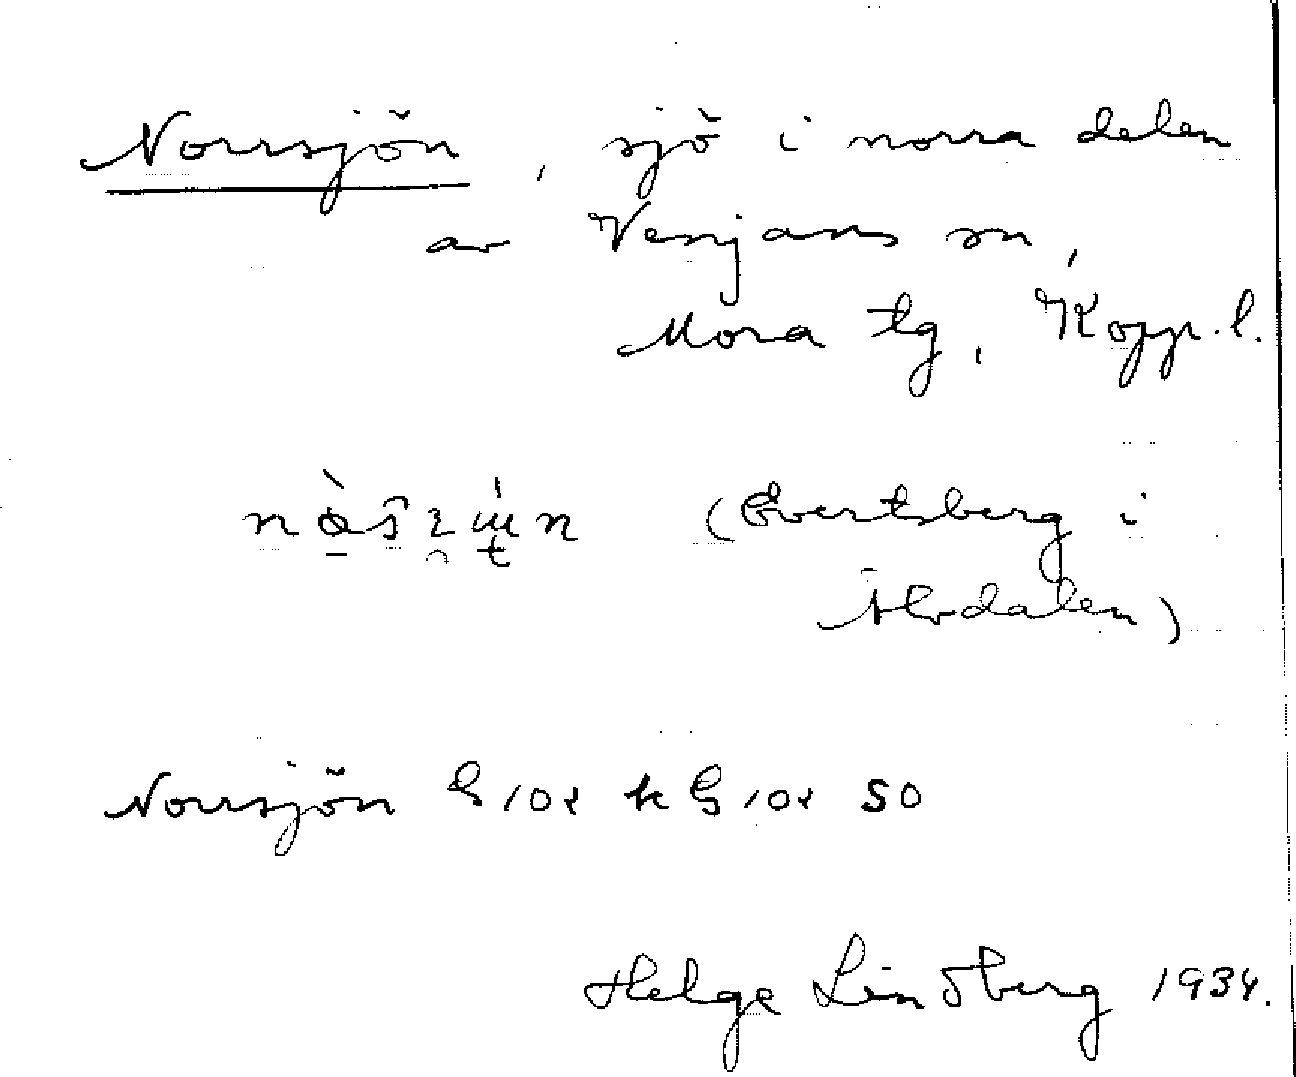 Norrsjön, sjö i norra delen
av Venjans sn,
Mora tg, Kopp. l.
(Evertsberg i
Älvdalen)
Norrsjön G 102 k G 102 SO
Helge Lindberg 1934.